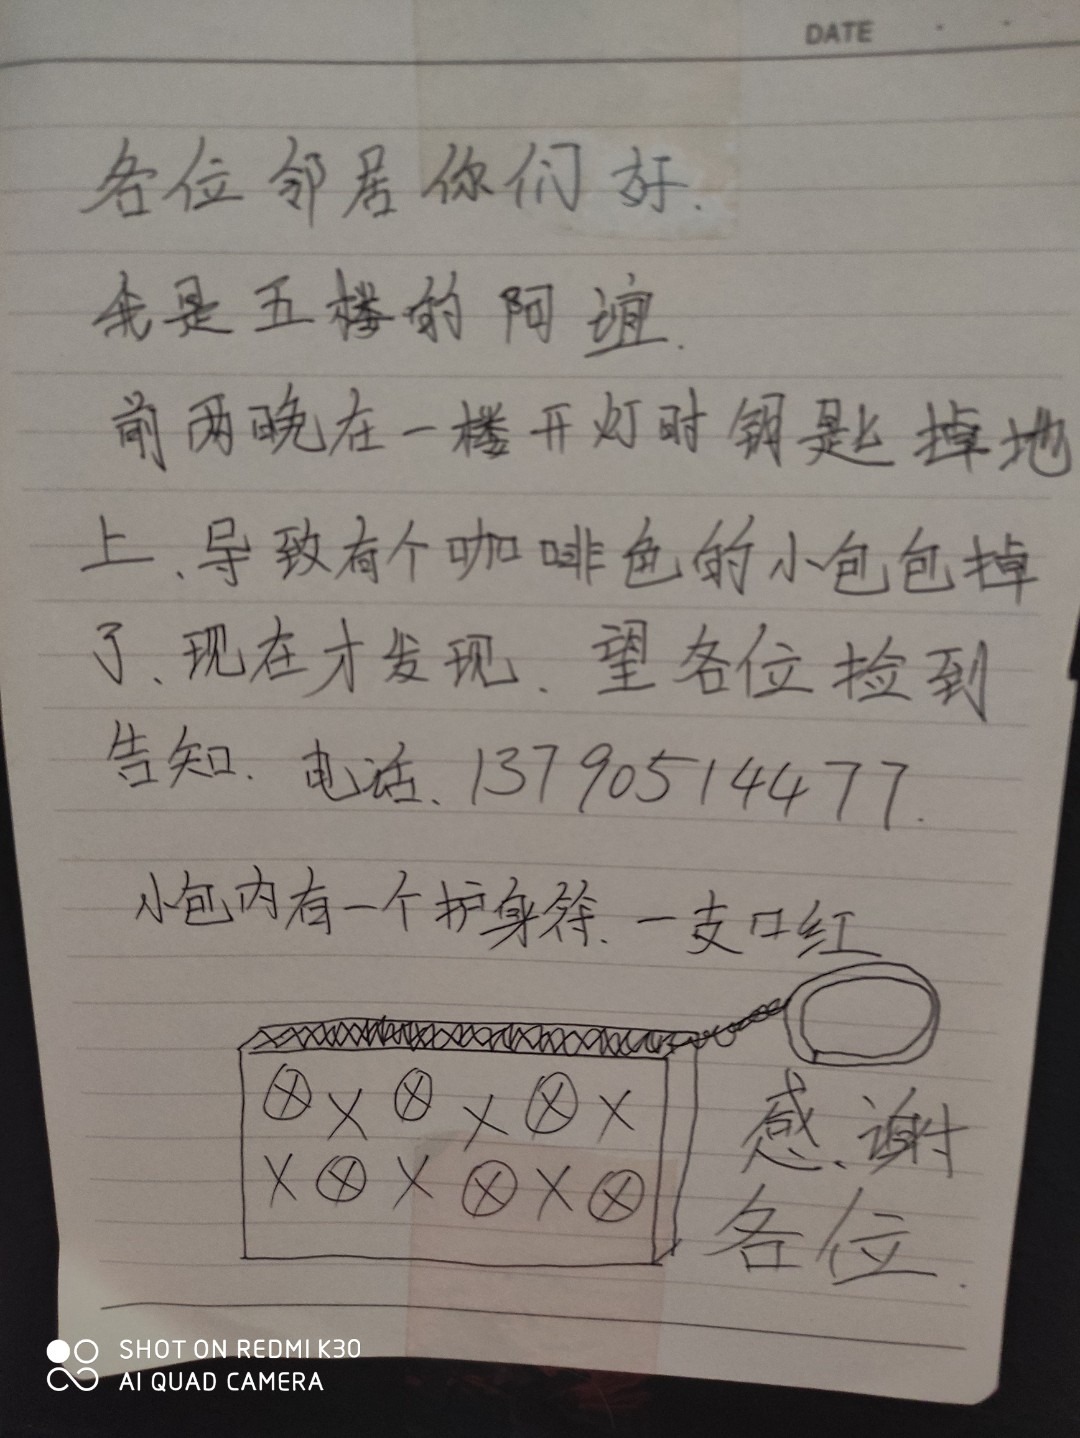 DATE
各位邻居你们好.
我是五楼的阿谊.
前两晚在一楼开灯时钥匙掉地
上、导致有个咖啡色的小包包掉
了、现在才发现、望各位捡到
告知. 电话、13790514477.
小包内有一个护身符、一支口红
感谢
各位.
SHOT ON REDMI K30
AI QUAD CAMERA